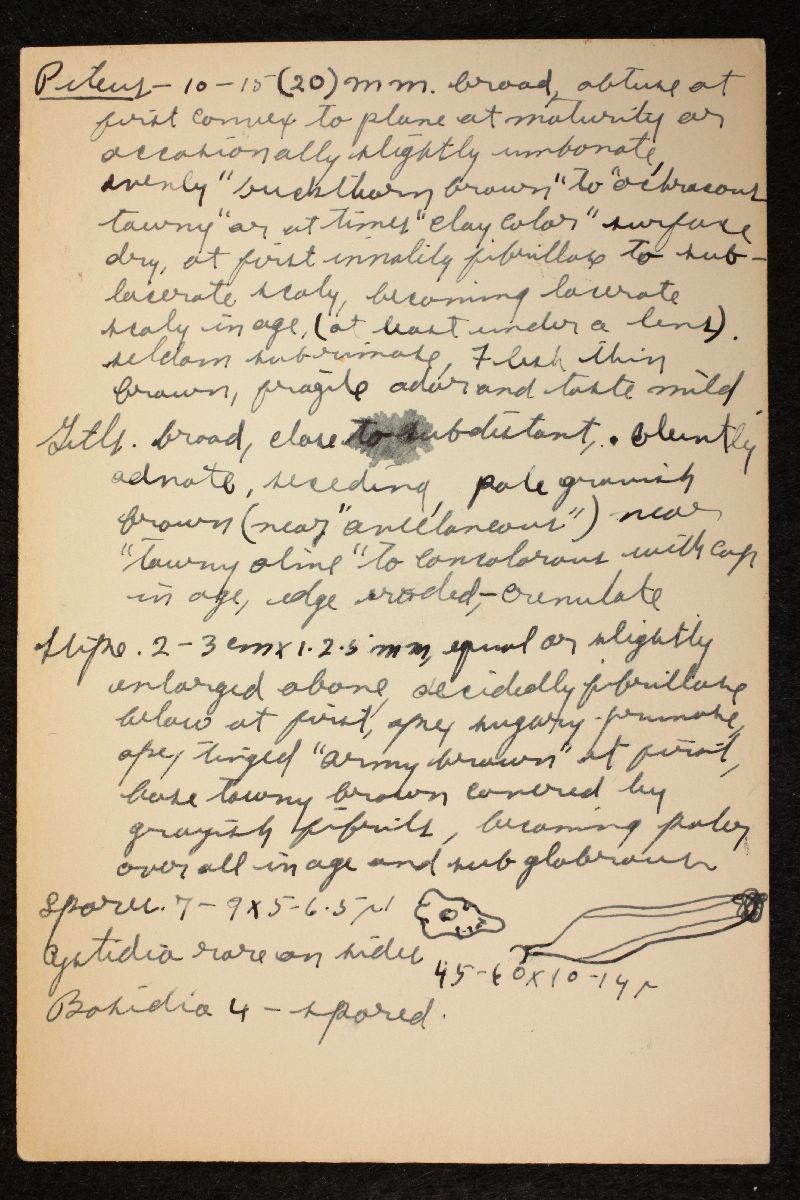 Pileus - 10-15 (20) mm. broad, obtuse at
first convex to plane at maturity or
occasionally slightly umbonate,
evenly "buckthorn brown" to "ochraceous
tawny" or at times "clay color" surface
dry, at first innately fibrillose to sub-
lacerate scaly, becoming lacerate
scaly in age, (at least under a lens).
seldom subrimose, Flesh thin
brown, fragile odor and taste mild
Gills. broad, close to subdistant, bluntly
adnate, seceding, pale grayish
brown (near "avellaneous") near
"tawny olive" to concolorous with cap
in age, edge eroded,-crenulate
Stipe. 2-3 cm x 1-2.5 mm, equal or slightly
enlarged above, decidedly fibrillose
below at first, apex sugary-pruinose,
apex tinged "army brown" at first,
base tawny brown covered by
grayish fibrils, becoming paler
over all in age and subglabrous
Spores. 7-9 x 5-6.5 µ
Cystidia rare on sides
45-60 x 10-14 µ
Basidia 4-spored.